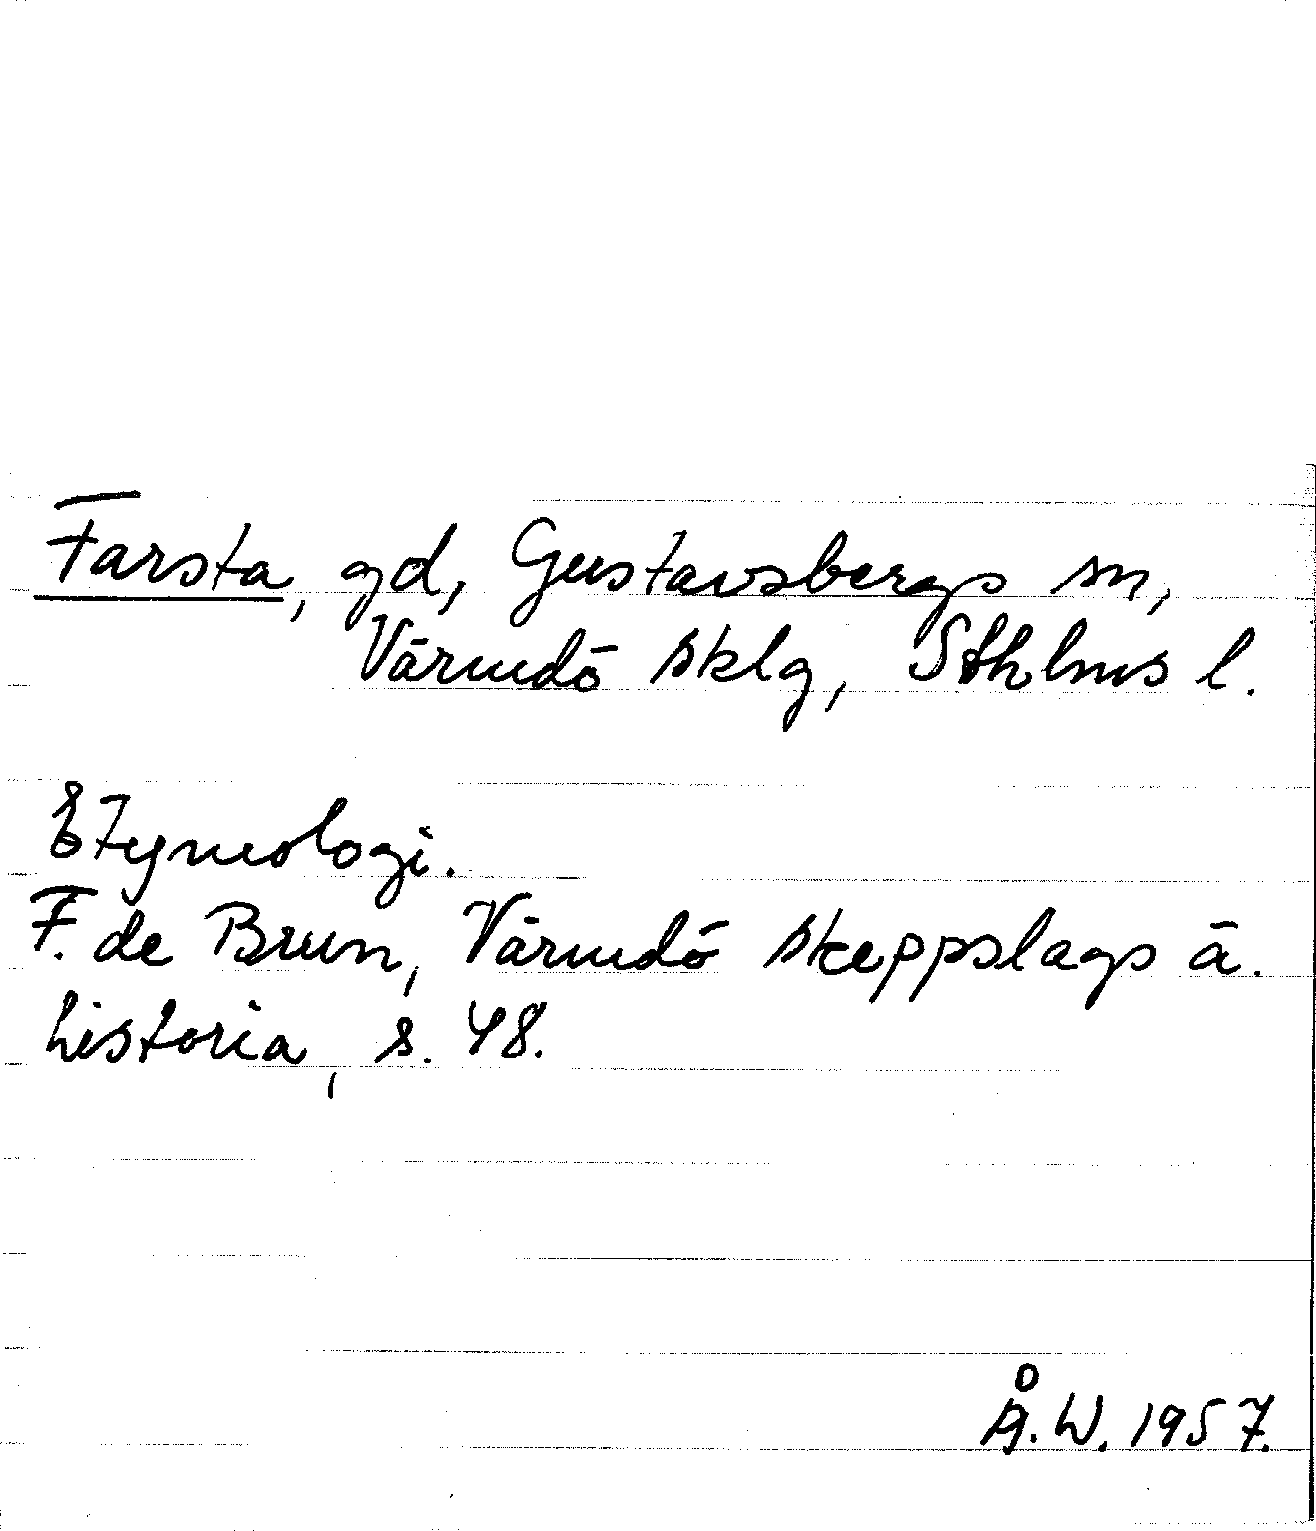 Farsta, gd, Gustavsbergs sn,
Värmdö sklg, Sthlms l.
Etymologi.
F. de Brun, Värmdö skeppslags ä.
historia, s. 48.
Å.W. 1957.